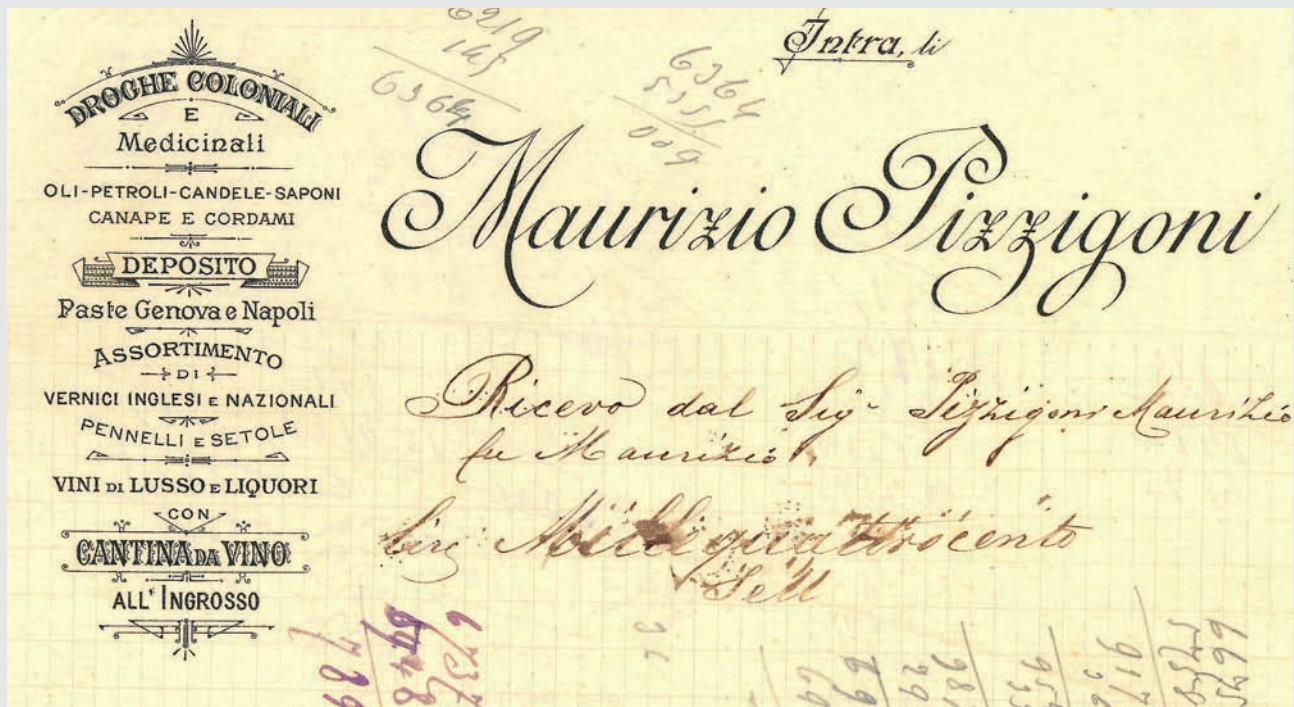 DROGHE COLONIALI
E
Medicinali
OLI-PETROLI-CANDELE-SAPONI
CANAPE E CORDAMI
DEPOSITO
Paste Genova e Napoli
ASSORTIMENTO
DI
VERNICI INGLESI E NAZIONALI
PENNELLI E SETOLE
VINI DI LUSSO E LIQUORI
CON
CANTINA DA VINO
ALL'INGROSSO
6219
145
6364
6364
5355
009
Intra, li
Maurizio Pizzigoni
Ricevo dal Sig. Pizzigoni Maurizio
fu Maurizio
quattrocento
6737